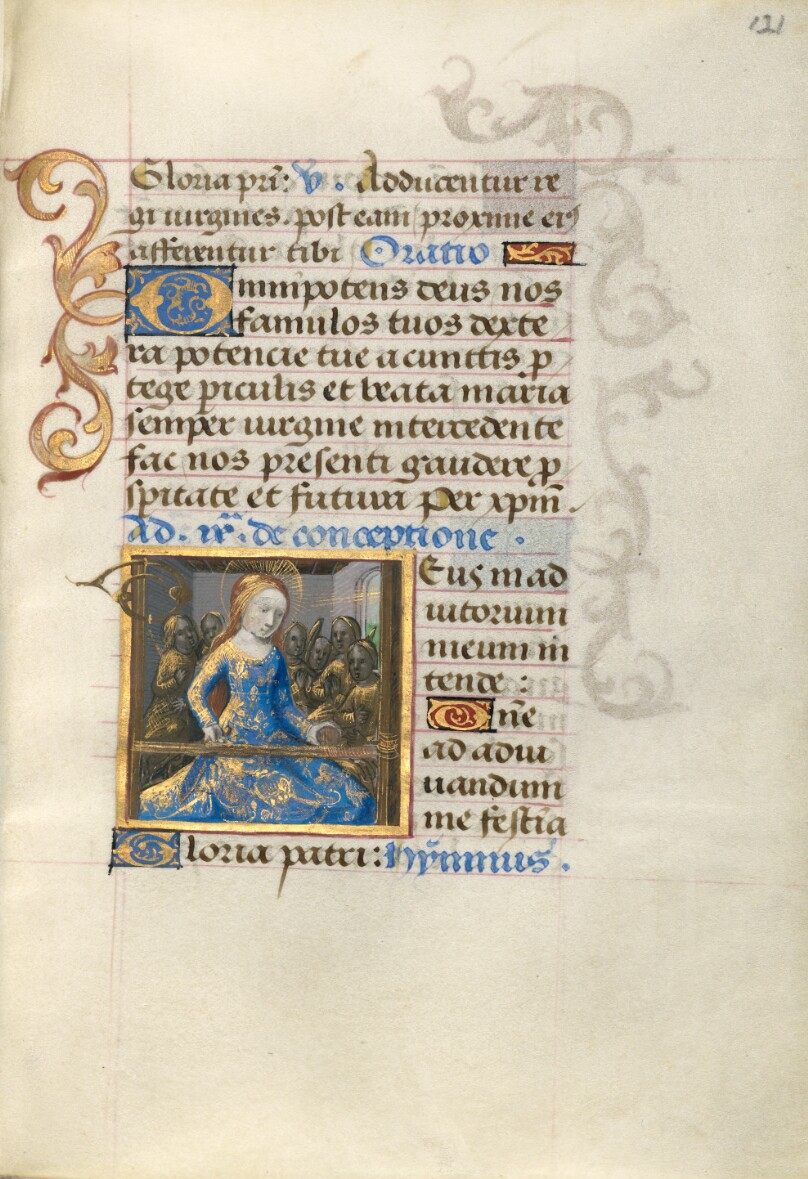 121
Gloria pr̄i: V. Adducentur re
gi uirgines. post eam proxime eiꝰ
afferentur tibi Oratio
Omnipotens deus nos
famulos tuos dexte
ra potencie tue a cunctis ꝓ
tege ꝑiculis et beata maria
semper uirgine intercedente
fac nos presenti gaudere ꝓ
sꝑitate et futura Per xp̄m.
Ad. ix. de conceptione.
Deus in ad
iutorium
meum in
tende:
Dn̄e
ad adiu
uandum
me festia
Gloria patri: hȳmnus.